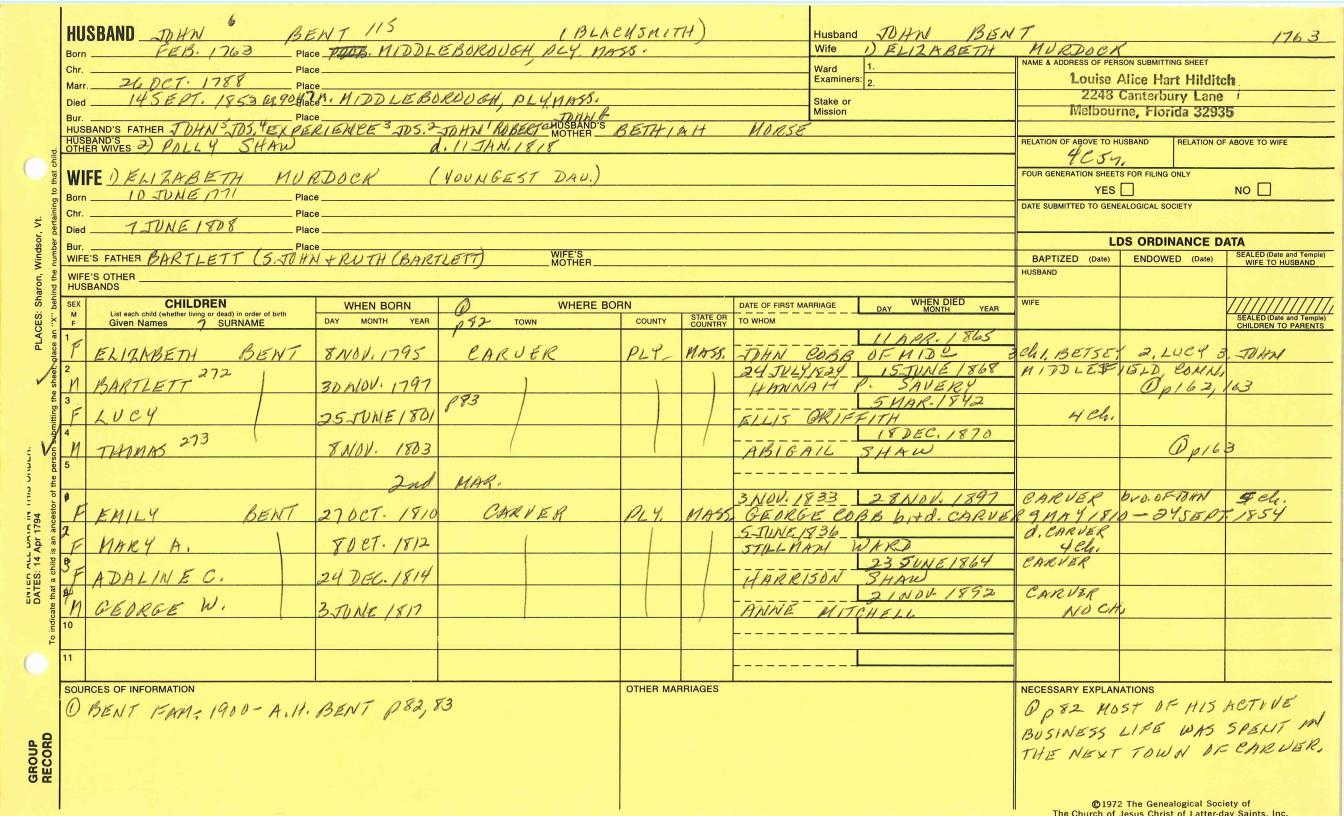 HUSBAND JOHN 6 BENT 115 (BLACKSMITH)
Born FEB. 1763 Place MIDDLEBOROUGH, PLY. MASS.
Chr. Place
Marr. 26 OCT. 1788 Place
Died 14 SEPT. 1853 Place MIDDLEBOROUGH, PLY MASS.
Bur.
HUSBAND'S FATHER JOHN 5 JOS. 4 EXPERIENCE 3 JOS. 2 JOHN 1 ROBERT JOHN HUSBAND'S MOTHER BETHIAH MORSE
HUSBAND'S OTHER WIVES 2) POLLY SHAW d. 11 JAN. 1818
Husband JOHN BENT 1763
Wife 1) ELIZABETH MURDOCK
Ward Examiners: 1.
2.
Stake or Mission
NAME & ADDRESS OF PERSON SUBMITTING SHEET
Louise Alice Hart Hilditch
2248 Canterbury Lane
Melbourne, Florida 32935
RELATION OF ABOVE TO HUSBAND RELATION OF ABOVE TO WIFE
4C5r.
FOUR GENERATION SHEETS FOR FILING ONLY
YES NO
DATE SUBMITTED TO GENEALOGICAL SOCIETY
WIFE 1) ELIZABETH MURDOCK (YOUNGEST DAU.)
Born 10 JUNE 1771 Place
Chr. Place
Died 7 JUNE 1808 Place
Bur. Place
WIFE'S FATHER BARTLETT (S. JOHN + RUTH (BARTLETT) WIFE'S MOTHER
WIFE'S OTHER HUSBANDS
LDS ORDINANCE DATA
BAPTIZED (Date) ENDOWED (Date) SEALED (Date and Temple) WIFE TO HUSBAND
HUSBAND
WIFE
SEALED (Date and Temple) CHILDREN TO PARENTS
SEX M F CHILDREN WHEN BORN WHERE BORN DATE OF FIRST MARRIAGE WHEN DIED
List each child (whether living or dead) in order of birth
Given Names 7 SURNAME DAY MONTH YEAR ① p82 TOWN COUNTY STATE OR COUNTRY TO WHOM DAY MONTH YEAR
1 11 APR. 1865
F ELIZABETH BENT 8 NOV. 1795 CARVER PLY. MASS. JOHN COBB OF MID 3 ch. 1, BETSEY 2, LUCY 3, JOHN
2 24 JULY 1824 15 JUNE 1868 MIDDLEFIELD, CONN.
M BARTLETT 272 30 NOV. 1797 HANNAH P. SAVERY ① p162, 163
3 p83 5 MAR. 1842
F LUCY 25 JUNE 1801 ELLIS GRIFFITH 4 ch.
4 18 DEC. 1870
M THOMAS 273 8 NOV. 1803 ABIGAIL SHAW ① p163
5
2nd MAR.
1 3 NOV. 1833 28 NOV. 1897 CARVER OF TOWN ch.
F EMILY BENT 27 OCT. 1810 CARVER PLY. MASS. GEORGE COBB b. + d. CARVER 9 MAY 1810 — 24 SEPT. 1854
2 5 JUNE 1836 d. CARVER
F MARY A. 8 OCT. 1812 STILLMAN WARD 4 ch.
3 23 JUNE 1864 CARVER
F ADALINE C. 24 DEC. 1814 HARRISON SHAW
4 21 NOV. 1892 CARVER
M GEORGE W. 3 JUNE 1817 ANNE MITCHELL NO CH.
10
11
SOURCES OF INFORMATION
① BENT FAM: 1900 - A.H. BENT p82, 83
OTHER MARRIAGES
NECESSARY EXPLANATIONS
① p82 MOST OF HIS ACTIVE
BUSINESS LIFE WAS SPENT IN
THE NEXT TOWN OF CARVER.
©1972 The Genealogical Society of
The Church of Jesus Christ of Latter-day Saints, Inc.
PLACES: Sharon, Windsor, Vt.
To indicate that a child is an ancestor of the person submitting the sheet, place an "X" behind the number pertaining to that child.
ENTER ALL DATA IN THIS ORDER:
DATES: 14 Apr 1794
GROUP
RECORD